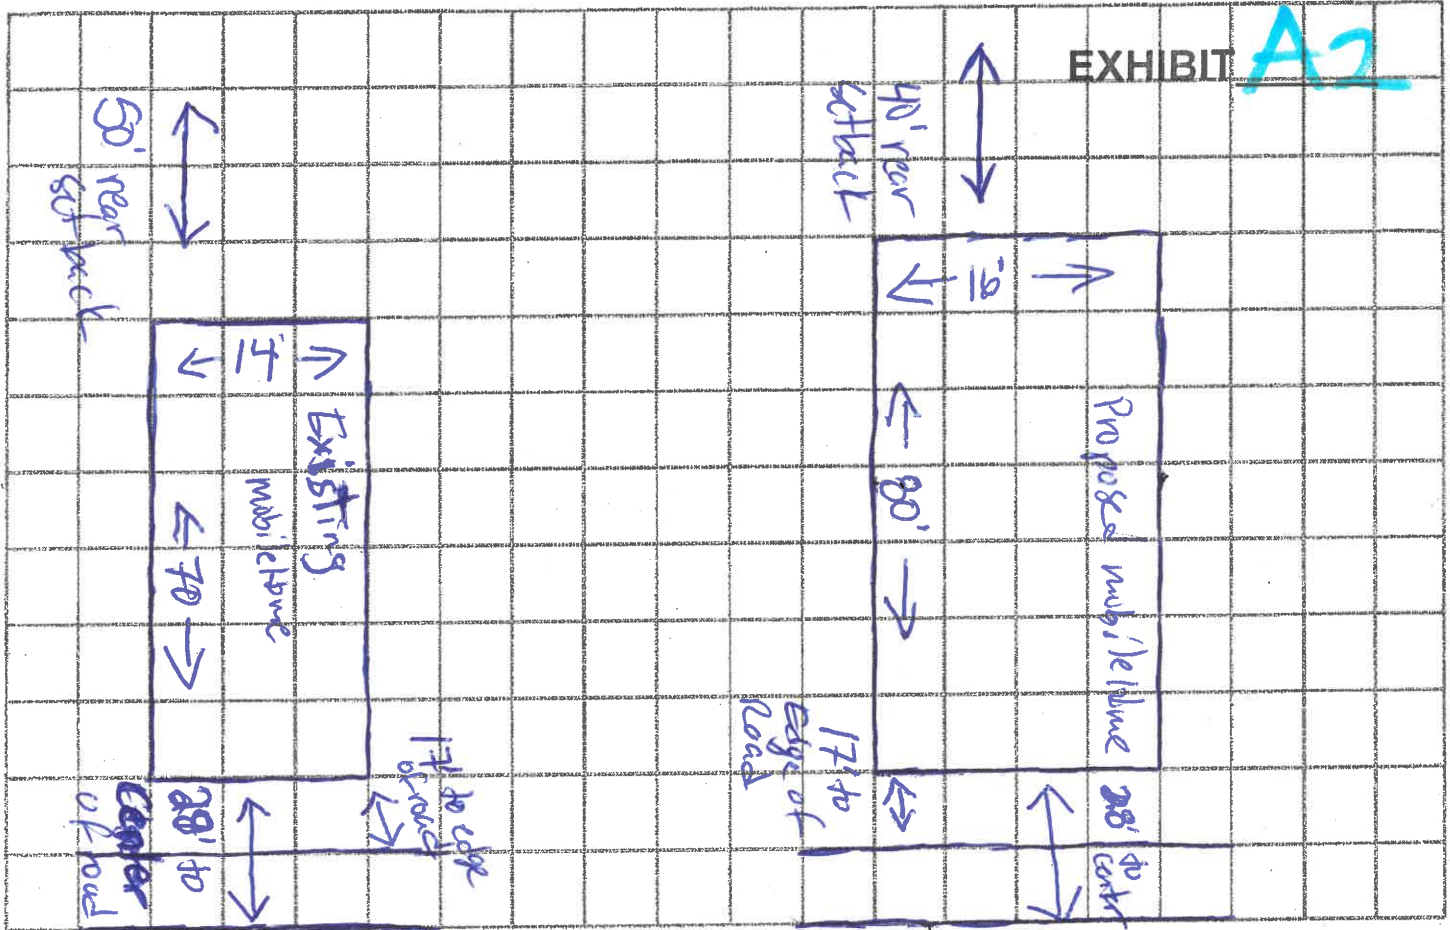 EXHIBIT A2
50' rear
set back
14'
Existing
mobile home
70
17' to edge
of road
28' to
Center
of road
40' rear
setback
16'
Proposed mobile home
80'
17' to
Edge of
Road
28' to
center